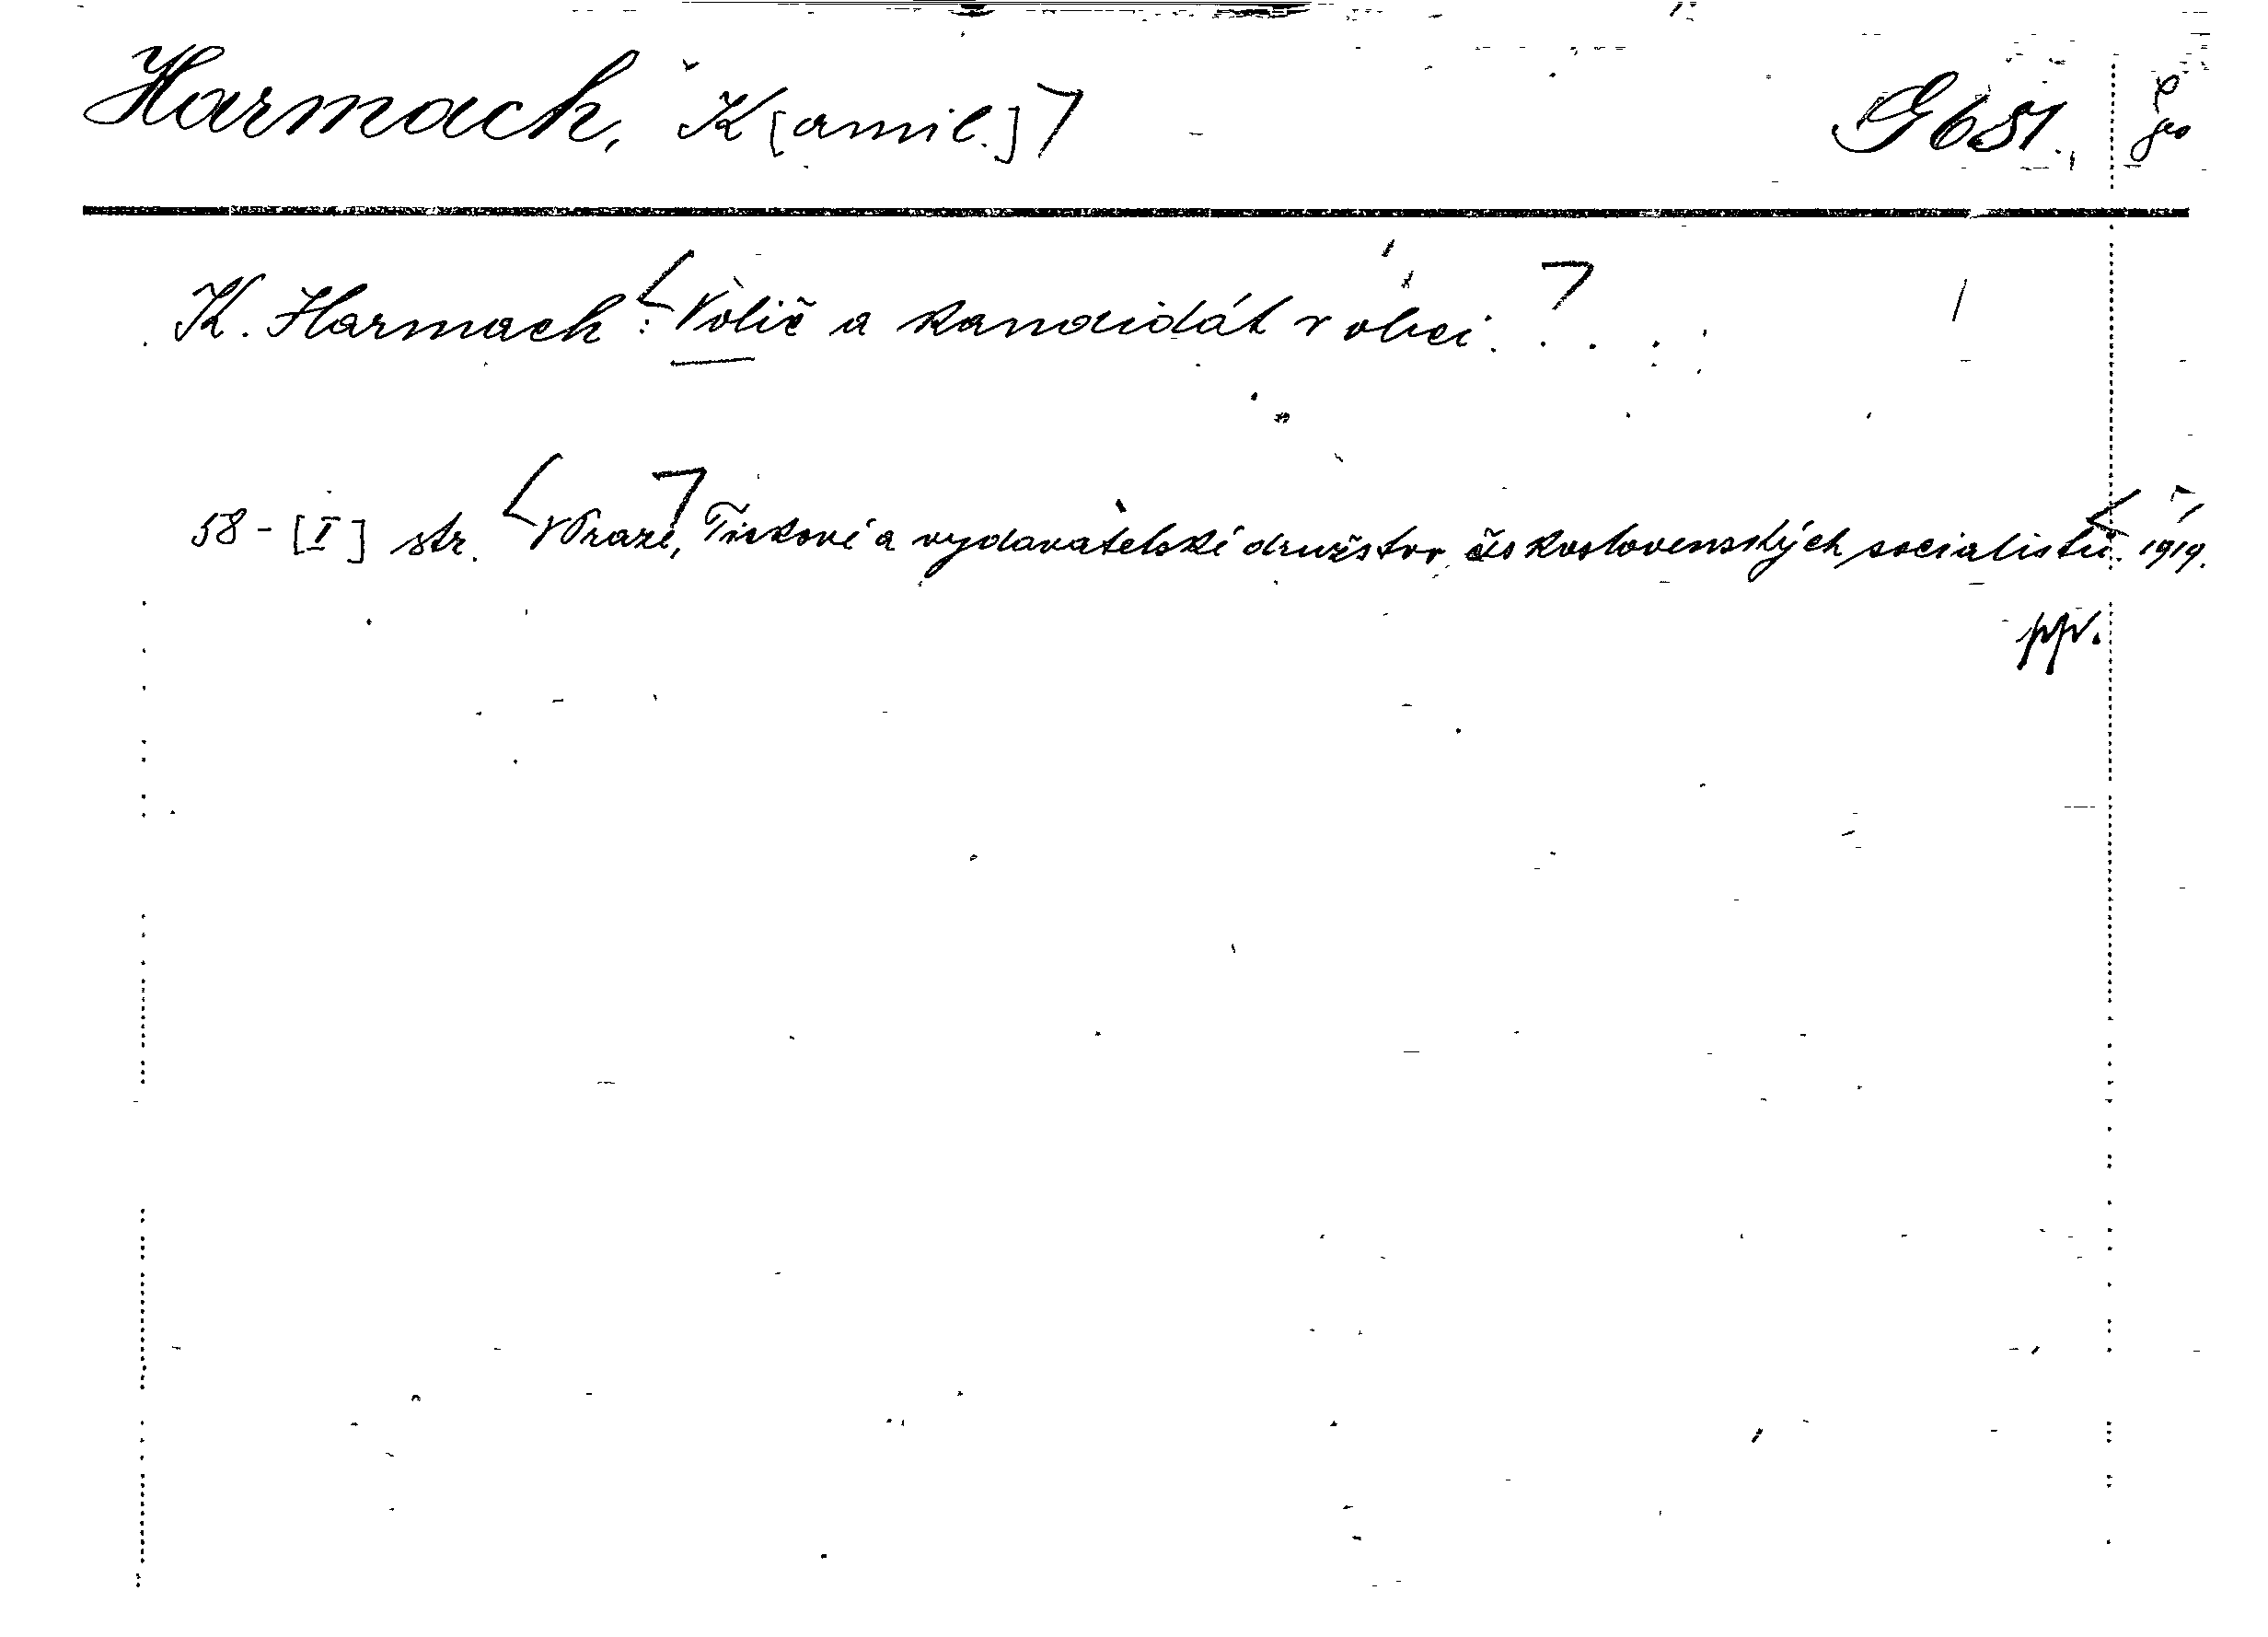 Harmach, K[amil.] G 651.
K. Harmach: Volič a kandidát v obci.
58-[I] str. V Praze, Tiskové a vydavatelské družstvo československých socialistů. 1919.
pp.